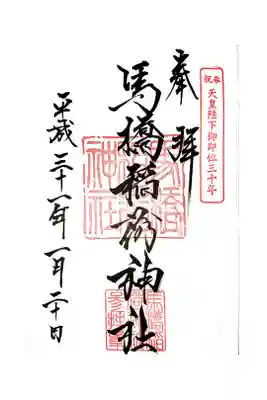 奉祝 天皇陛下御即位三十年
奉拝
馬橋稲荷神社
平成三十一年一月二十日